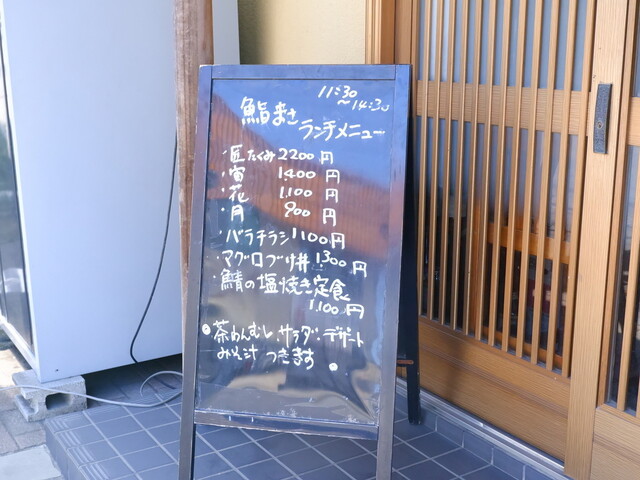 11:30
～14:30
鮨まさ
ランチメニュー
・匠たくみ 2200円
・宙 1400円
・花 1,100円
・月 900円
・バラチラシ 1100円
・マグロづけ丼 1300円
・鯖の塩焼き定食
1,100円
●茶わんむし、サラダ・デザート
みそ汁 つきます。